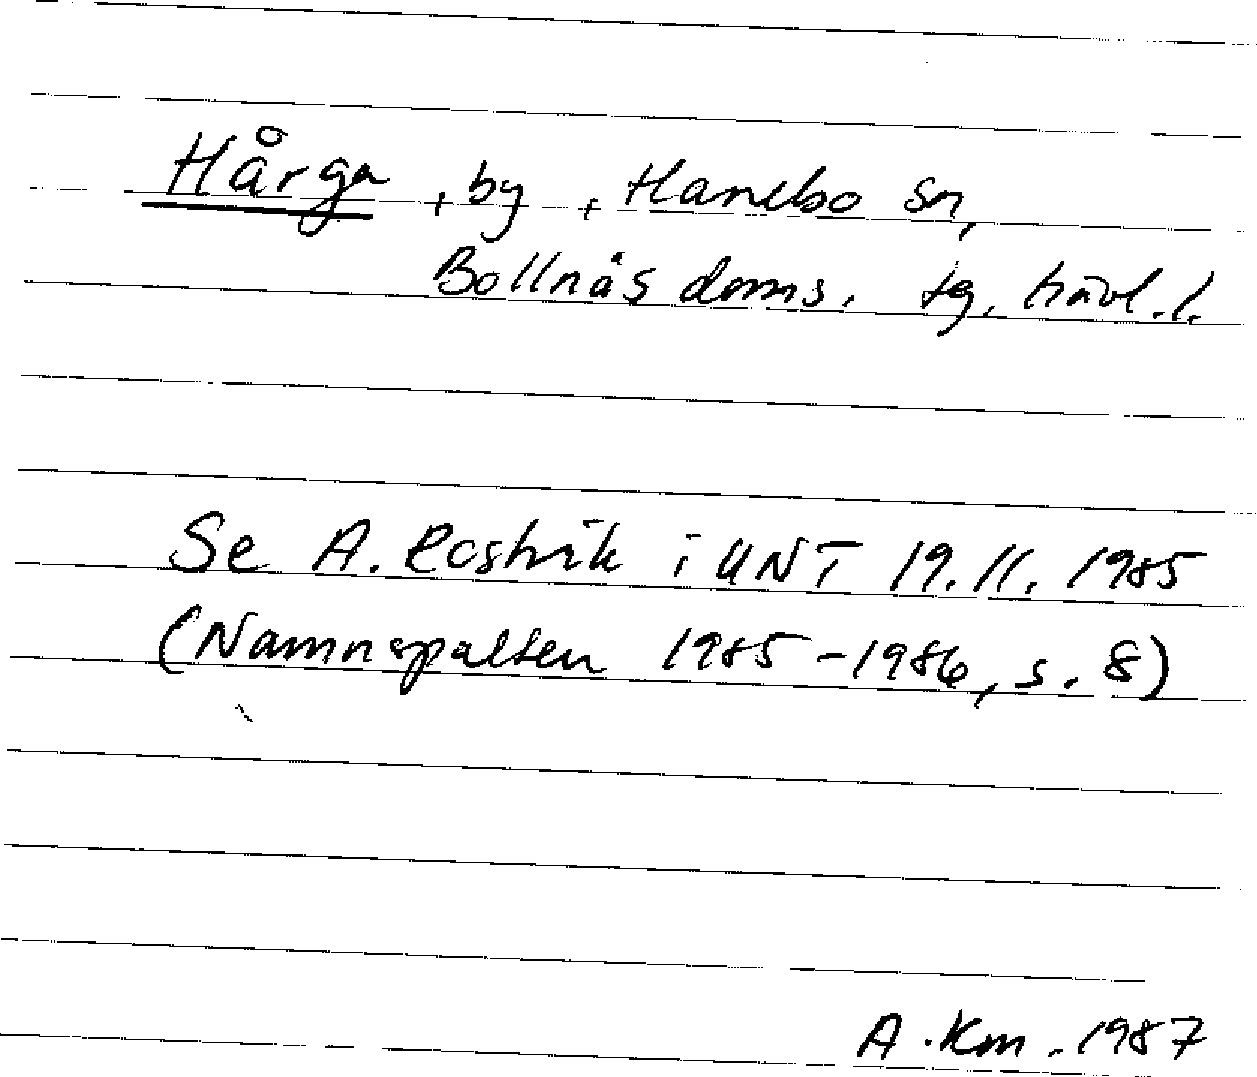 Hårga, by, Hanebo sn,
Bollnäs doms. tg. Gävl.l.
Se A. Rostvik i UNT 19.11.1985
(Namnspalten 1985-1986, s. 8)
A.Km.1987